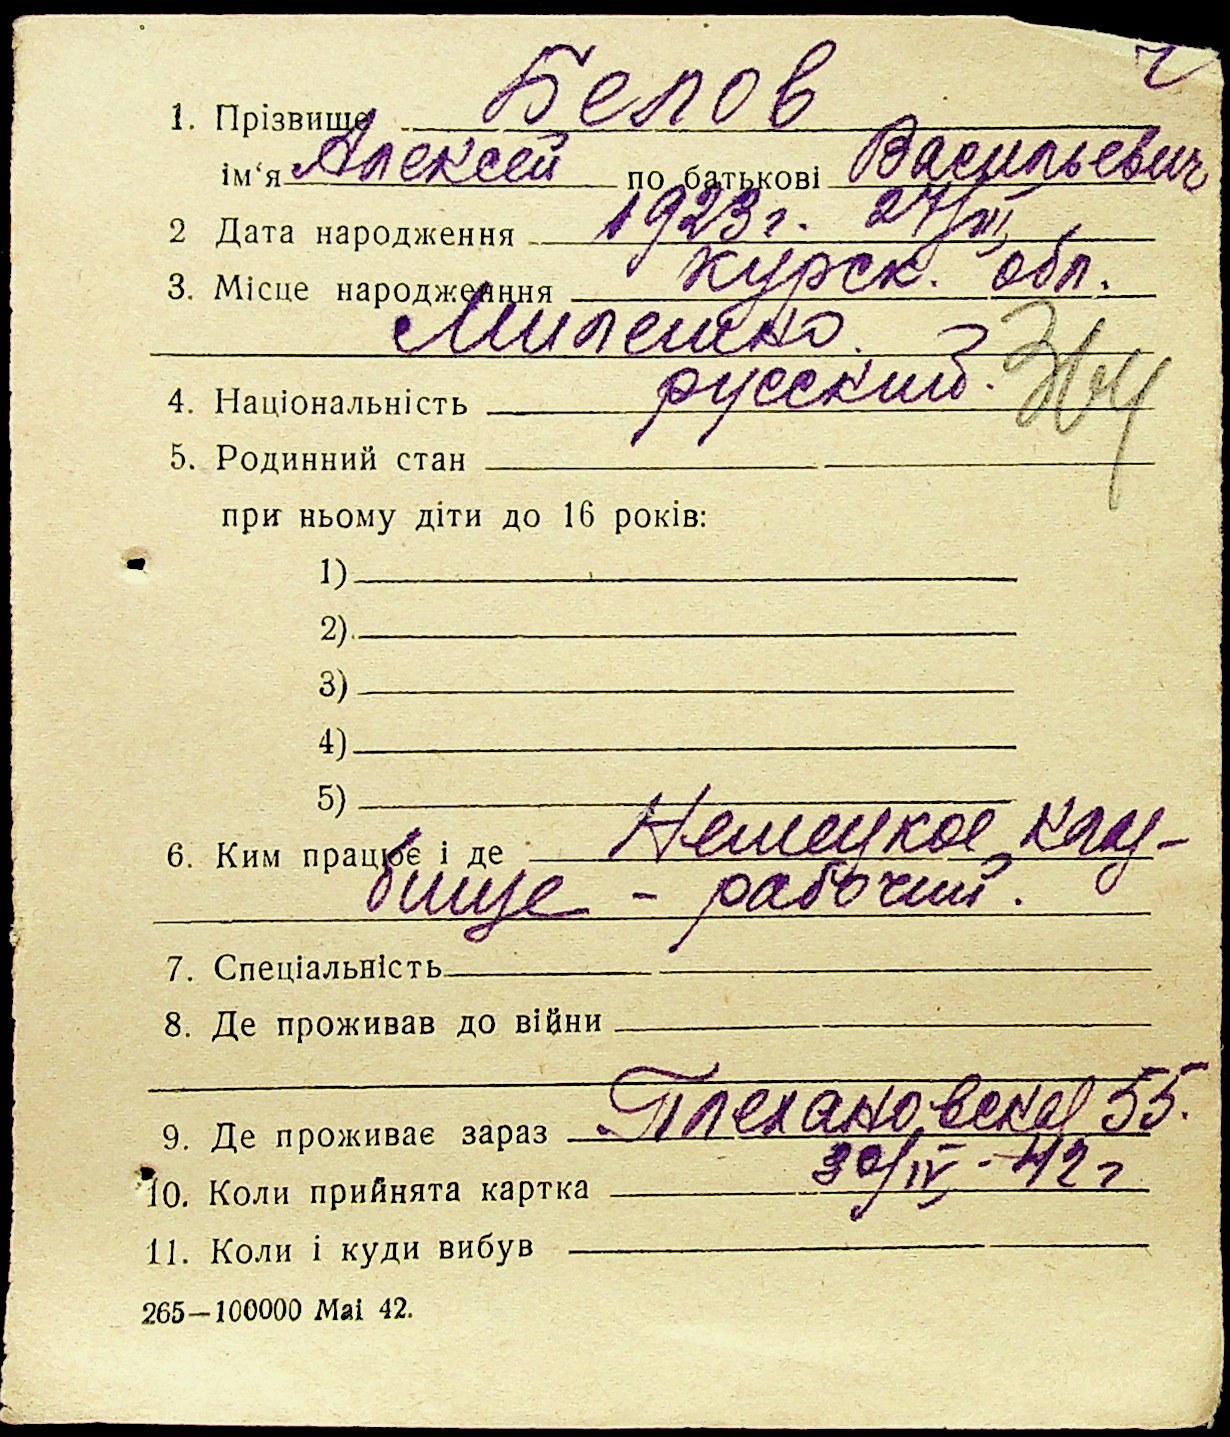 1. Прізвище Белов
ім‘я Алексей по батькові Васильевич
2 Дата народження 1923 г. 27/XI
3. Місце народження Курск. обл.
4. Національність русский.
5. Родинний стан
при ньому діти до 16 років:
1)
2)
3)
4)
5)
6. Ким працює і де Немецкое клад-
бище – рабочий.
7. Спеціальність
8. Де проживав до війни
9. Де проживає зараз Плехановская 55.
10. Коли прийнята картка 30/IV - 42 г
11. Коли і куди вибув
265—100000 Mai 42.